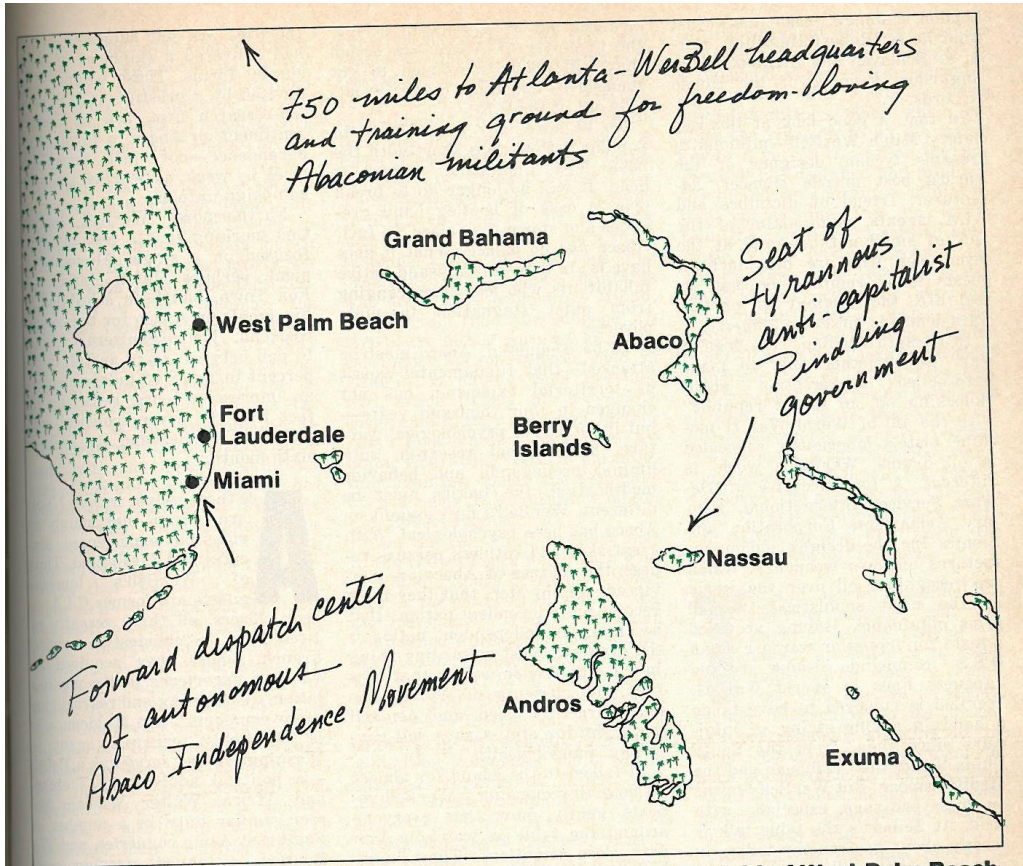 750 miles to Atlanta-WerBell headquarters
and training ground for freedom-loving
Abaconian militants
Grand Bahama
Seat of
tyrannous
anti-capitalist
Pindling
government
West Palm Beach
Abaco
Fort
Lauderdale
Berry
Islands
Miami
Nassau
Forward dispatch center
of autonomous
Abaco Independence Movement
Andros
Exuma
West Palm Beach